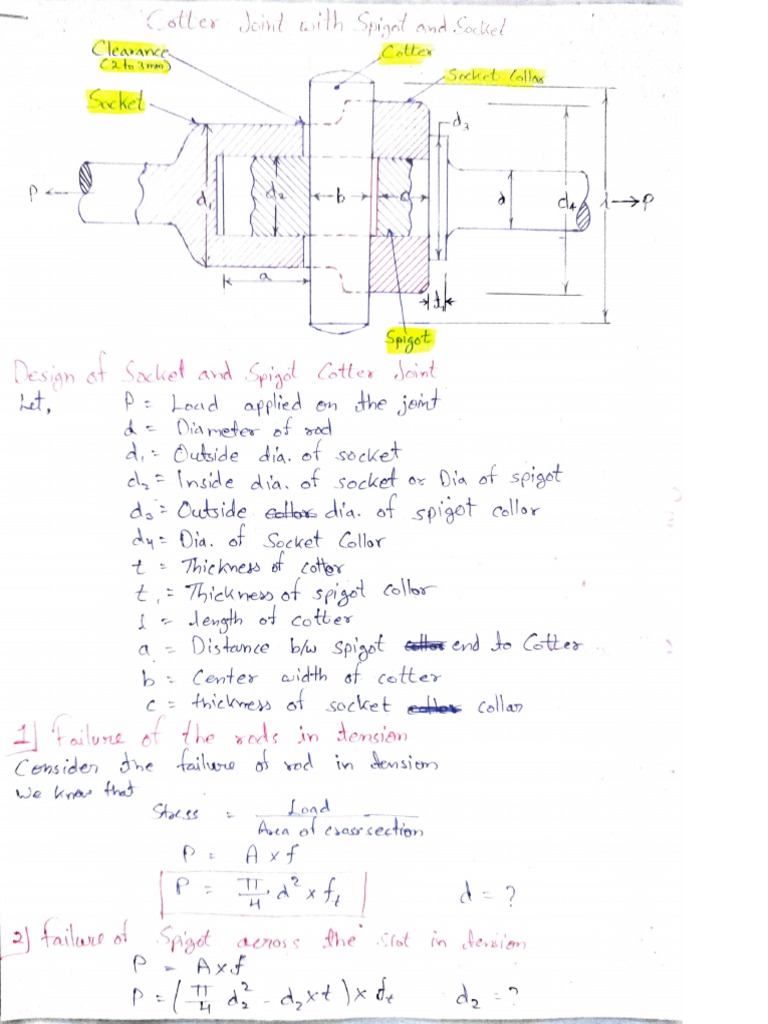 Cotter Joint with Spigot and Socket
Clearance
(2 to 3mm)
Cotter
Socket Collar
Socket
d3
P
d1
d2
b
c
d
d4
l
P
a
t1
Spigot
Design of Socket and Spigot Cotter Joint
Let, P = Load applied on the joint
d = Diameter of rod
d1 = Outside dia. of socket
d2 = Inside dia. of socket or Dia of spigot
d3 = Outside collar dia. of spigot collar
d4 = Dia. of Socket Collar
t = Thickness of cotter
t1 = Thickness of spigot collar
l = length of cotter
a = Distance b/w spigot end to Cotter
b = Center width of cotter
c = thickness of socket collar
1] Failure of the rods in tension
Consider the failure of rod in tension
We know that
Stress = Load / Area of cross section
P = A x f
P = π/4 d² x ft d = ?
2] Failure of Spigot across the slot in tension
P = A x f
P = (π/4 d2² - d2 x t) x ft d2 = ?